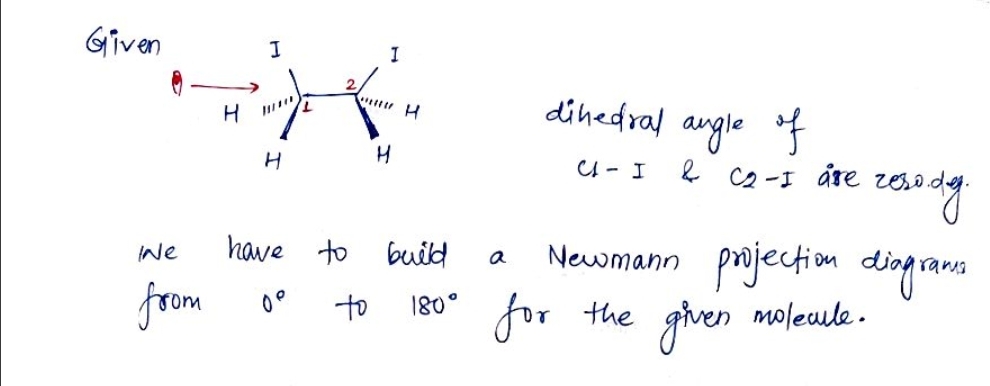 Given
I I
2
H 1 H
H H
dihedral angle of
C1-I & C2-I are zero.deg.
We have to build a Newmann projection diagrams
from 0° to 180° for the given molecule.